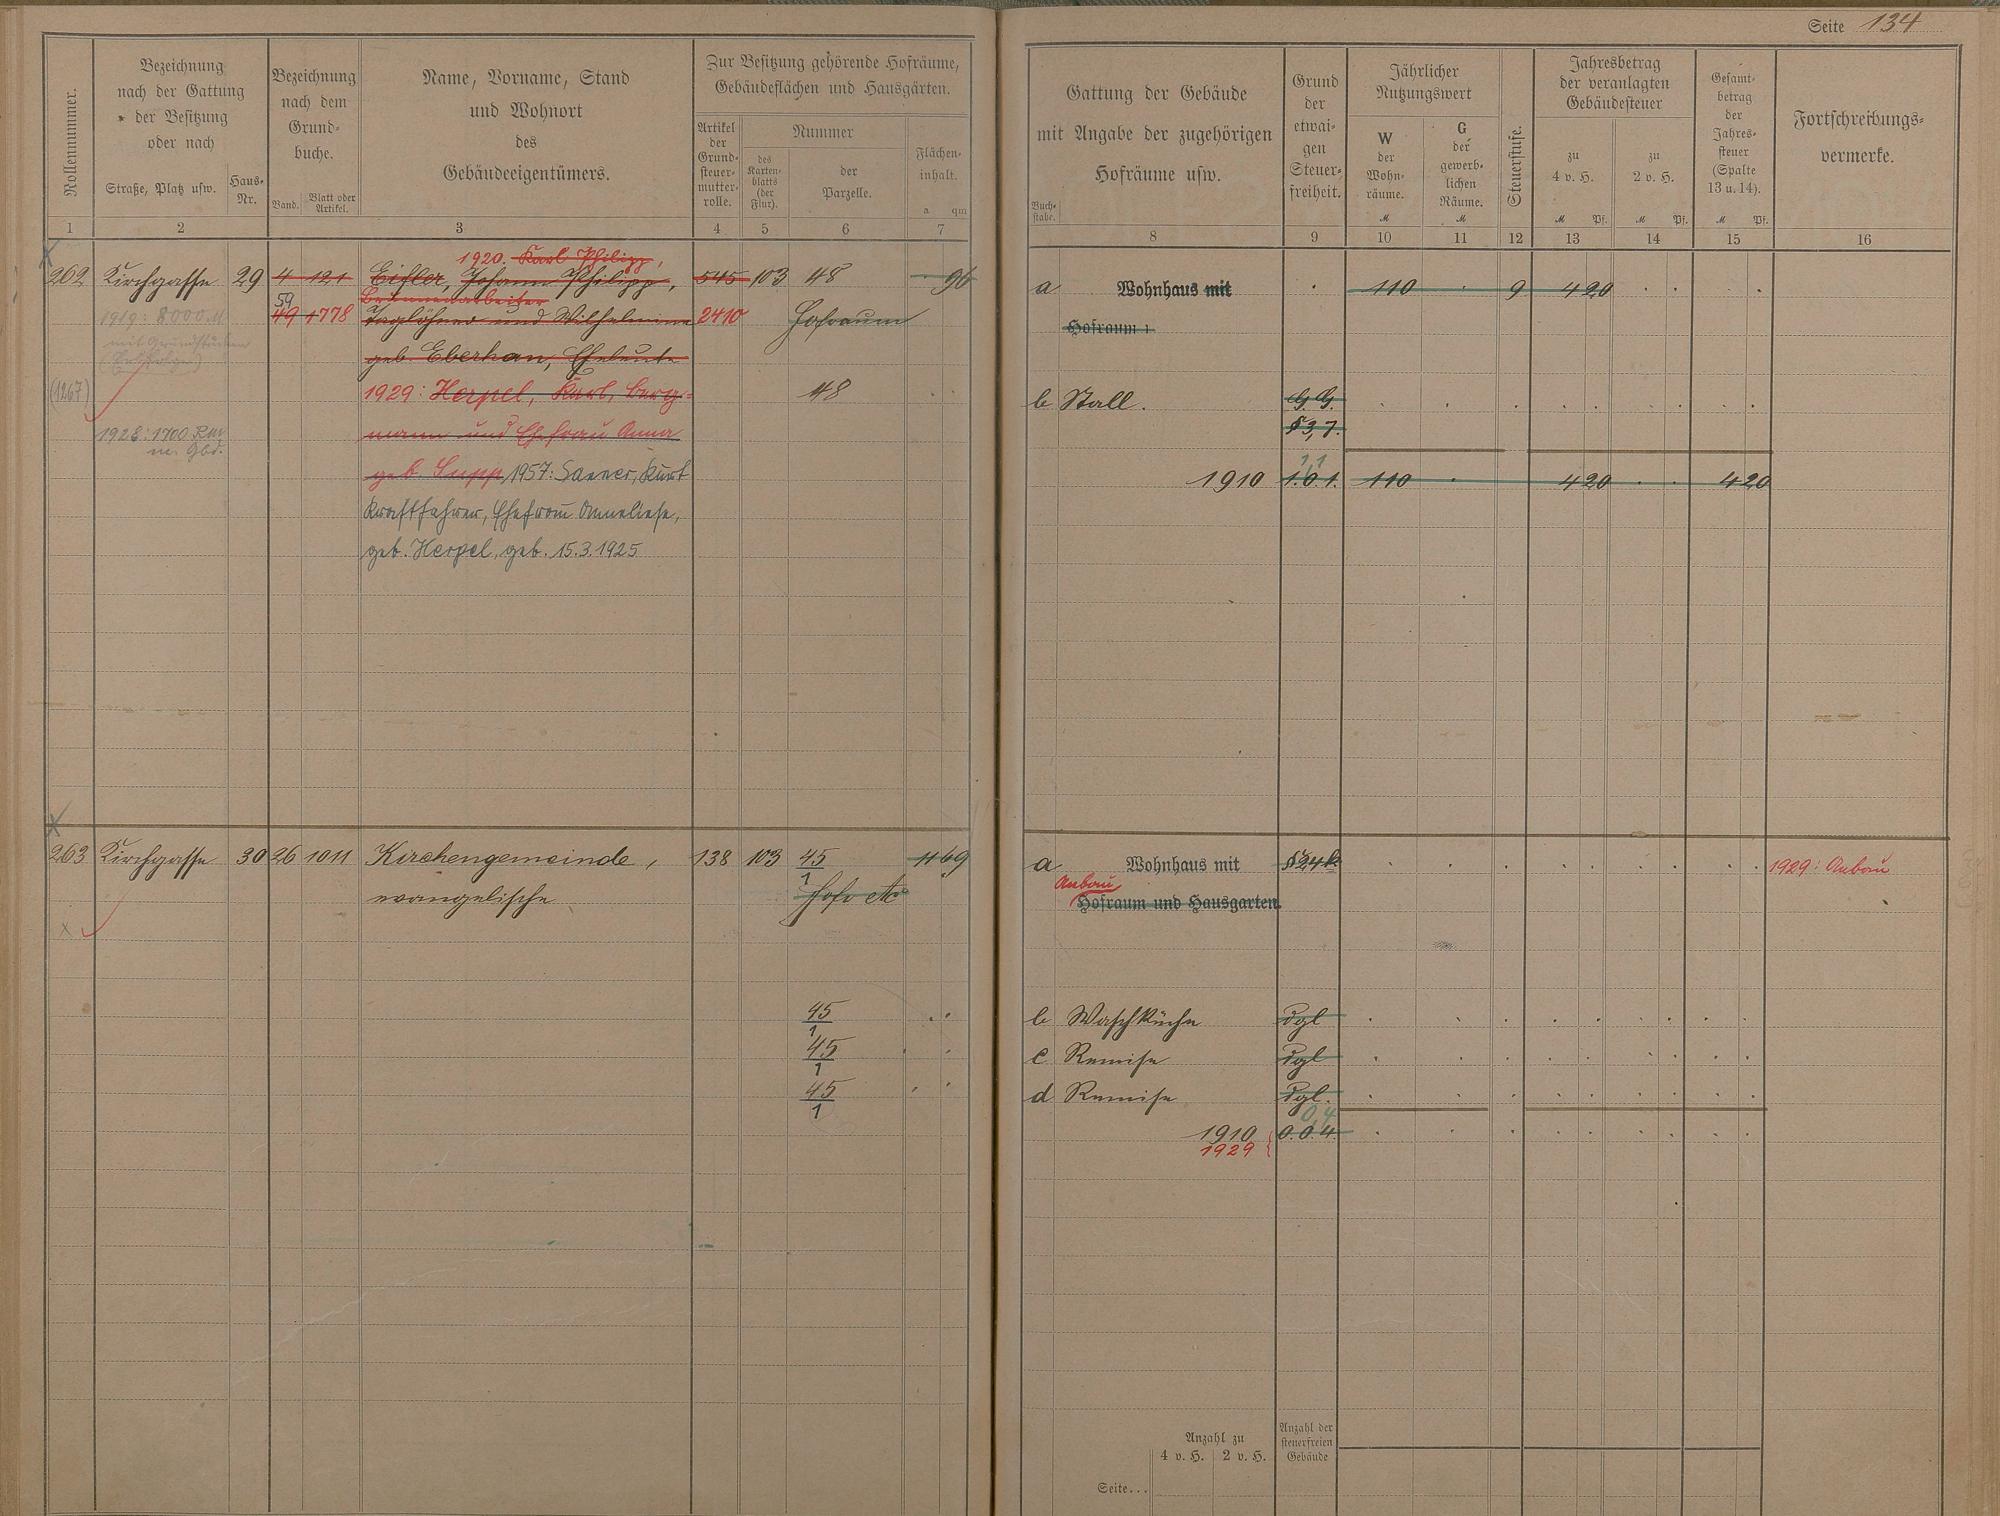 Seite 134
Rollennummer.
Bezeichnung
nach der Gattung
der Besitzung
oder nach
Straße, Platz usw.
Haus-
Nr.
Bezeichnung
nach dem
Grund-
buche.
Band.
Blatt oder
Artikel.
Name, Vorname, Stand
und Wohnort
des
Gebäudeeigentümers.
Zur Besitzung gehörende Hofräume,
Gebäudeflächen und Hausgärten.
Artikel
der
Grund-
steuer-
mutter-
rolle.
Nummer
des
Karten-
blatts
(der
Flur).
der
Parzelle.
Flächen-
inhalt.
a qm
1 2 3 4 5 6 7
Gattung der Gebäude
mit Angabe der zugehörigen
Hofräume usw.
Buch-
stabe.
Grund
der
etwai-
gen
Steuer-
freiheit.
Jährlicher
Nutzungswert
W
der
Wohn-
räume.
M
G
der
gewerb-
lichen
Räume.
M
Steuerstufe.
Jahresbetrag
der veranlagten
Gebäudesteuer
zu
4 v. H.
M Pf.
zu
2 v. H.
M Pf.
Gesamt-
betrag
der
Jahres-
steuer
(Spalte
13 u. 14).
M Pf.
Fortschreibungs-
vermerke.
8 9 10 11 12 13 14 15 16
1920. Karl Philipp,
262 Kirchgasse 29 4 121 Eifler, Johann Philipp, 545 103 48 96
Brunnenarbeiter
59
1919: 8000 M 49 1778 Taglöhner und Wilhelmine 2410 Hofraum
mit Grundstücken
geb. Eberhan, Eheleute
(1267) 1929: Herpel, Karl, Berg- 48
1928: 1700 RM mann und Ehefrau Anna
m. Gbd.
geb. Supp, 1957: Saener, Kurt
Kraftfahrer, Ehefrau Anneliese,
geb. Herpel, geb. 15.3.1925
a Wohnhaus mit 110 9 4 20
Hofraum
b Stall. G. G.
§ 3,7.
1 1
1910 1.0.1. 110 4 20 4 20
263 Kirchgasse 30 26 1011 Kirchengemeinde, 138 103 45/1 11 69
evangelische Hofr etc
45/1
45/1
45/1
a Wohnhaus mit § 24 k 1929: Anbau
Anbau
Hofraum und Hausgarten.
b Waschküche dgl
c Remise dgl
d Remise dgl.
0,4
1910 0.0.4.
1929
Anzahl zu
4 v. H. 2 v. H.
Anzahl der
steuerfreien
Gebäude
Seite...